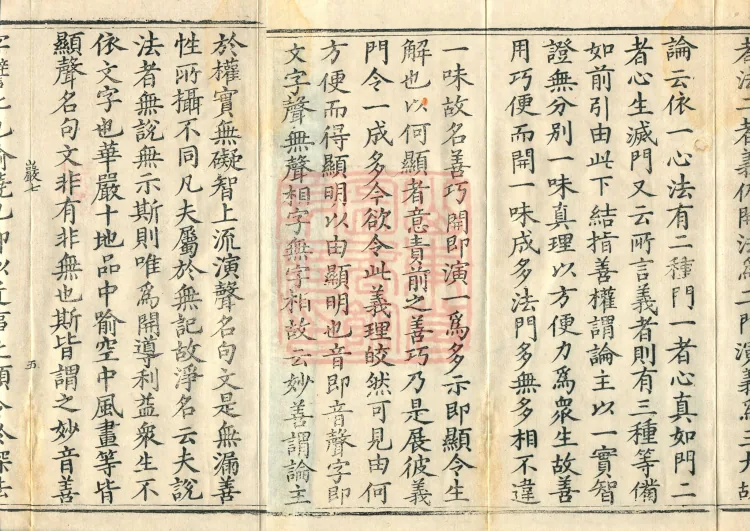 者法二者義依開法爲二門演義爲大故
論云依一心法有二種門一者心真如門二
者心生滅門又云所言義者則有三種等備
如前引由此下結指善權謂論主以一實智
證無分別一味真理以方便力爲衆生故善
用巧便而開一味成多法門多無多相不違
一味故名善巧開即演一爲多示即顯令生
解也以何顯者意責前之善巧乃是展彼義
門令一成多今欲令此義理皎然可見由何
方便而得顯明以由顯明也音即音聲字即
文字聲無聲相字無字相故云妙善謂論主
於權實無礙智上流演聲名句文是無漏善
性所攝不同凡夫屬於無記故淨名云夫說
法者無說無示斯則唯爲開導利益衆生不
依文字也華嚴十地品中喻空中風畫等皆
顯聲名句文非有非無也斯皆謂之妙音善
嚴七 五